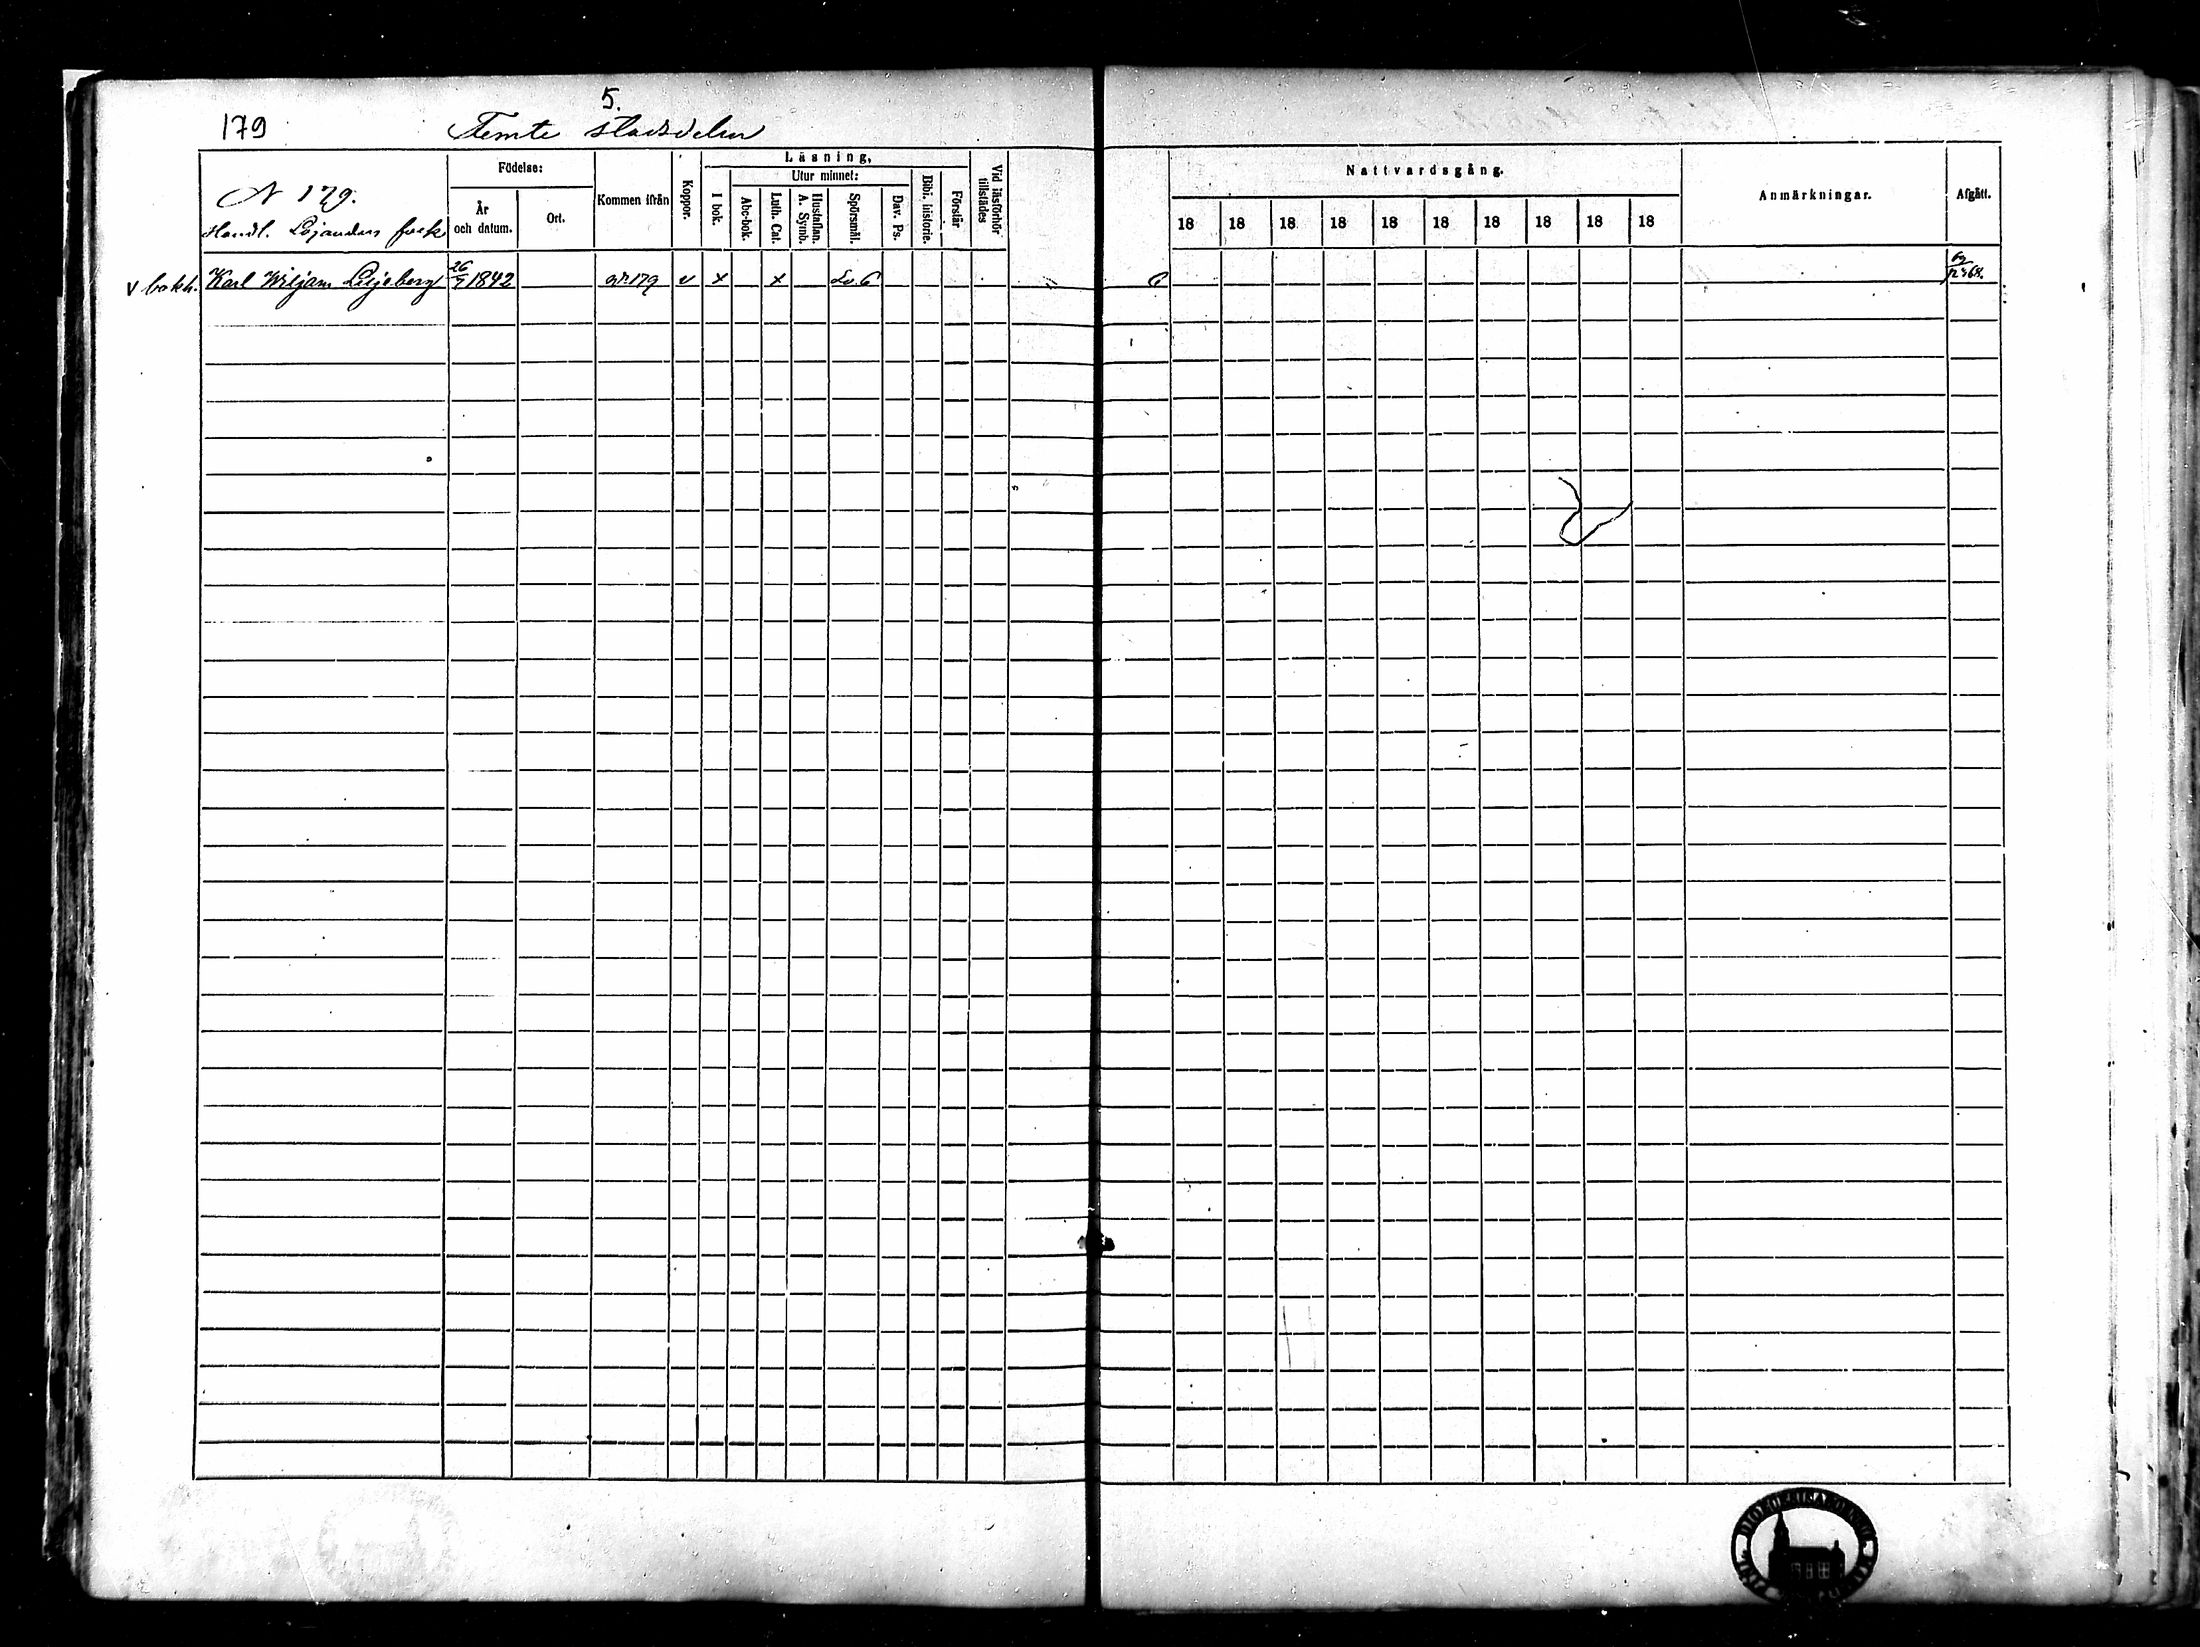 5.
179 Femte stadsdelen
N 179.
Handl. Lojanders folk
Födelse:
År och datum.
Ort.
Kommen ifrån
Koppor.
Läsning,
I bok.
Utur minnet:
Abc-bok.
Luth. Cat.
Hustaflan. A. Symb.
Spörsmål.
Dav. Ps.
Bibl. historie.
Förstår
Vid läsförhör tillstädes
Nattvardsgång.
18 18 18 18 18 18 18 18 18 18
Anmärkningar.
Afgått.
v bokh. Karl Wiljam Liljeberg 26/7 1842 179 v x x Sv. 6 6